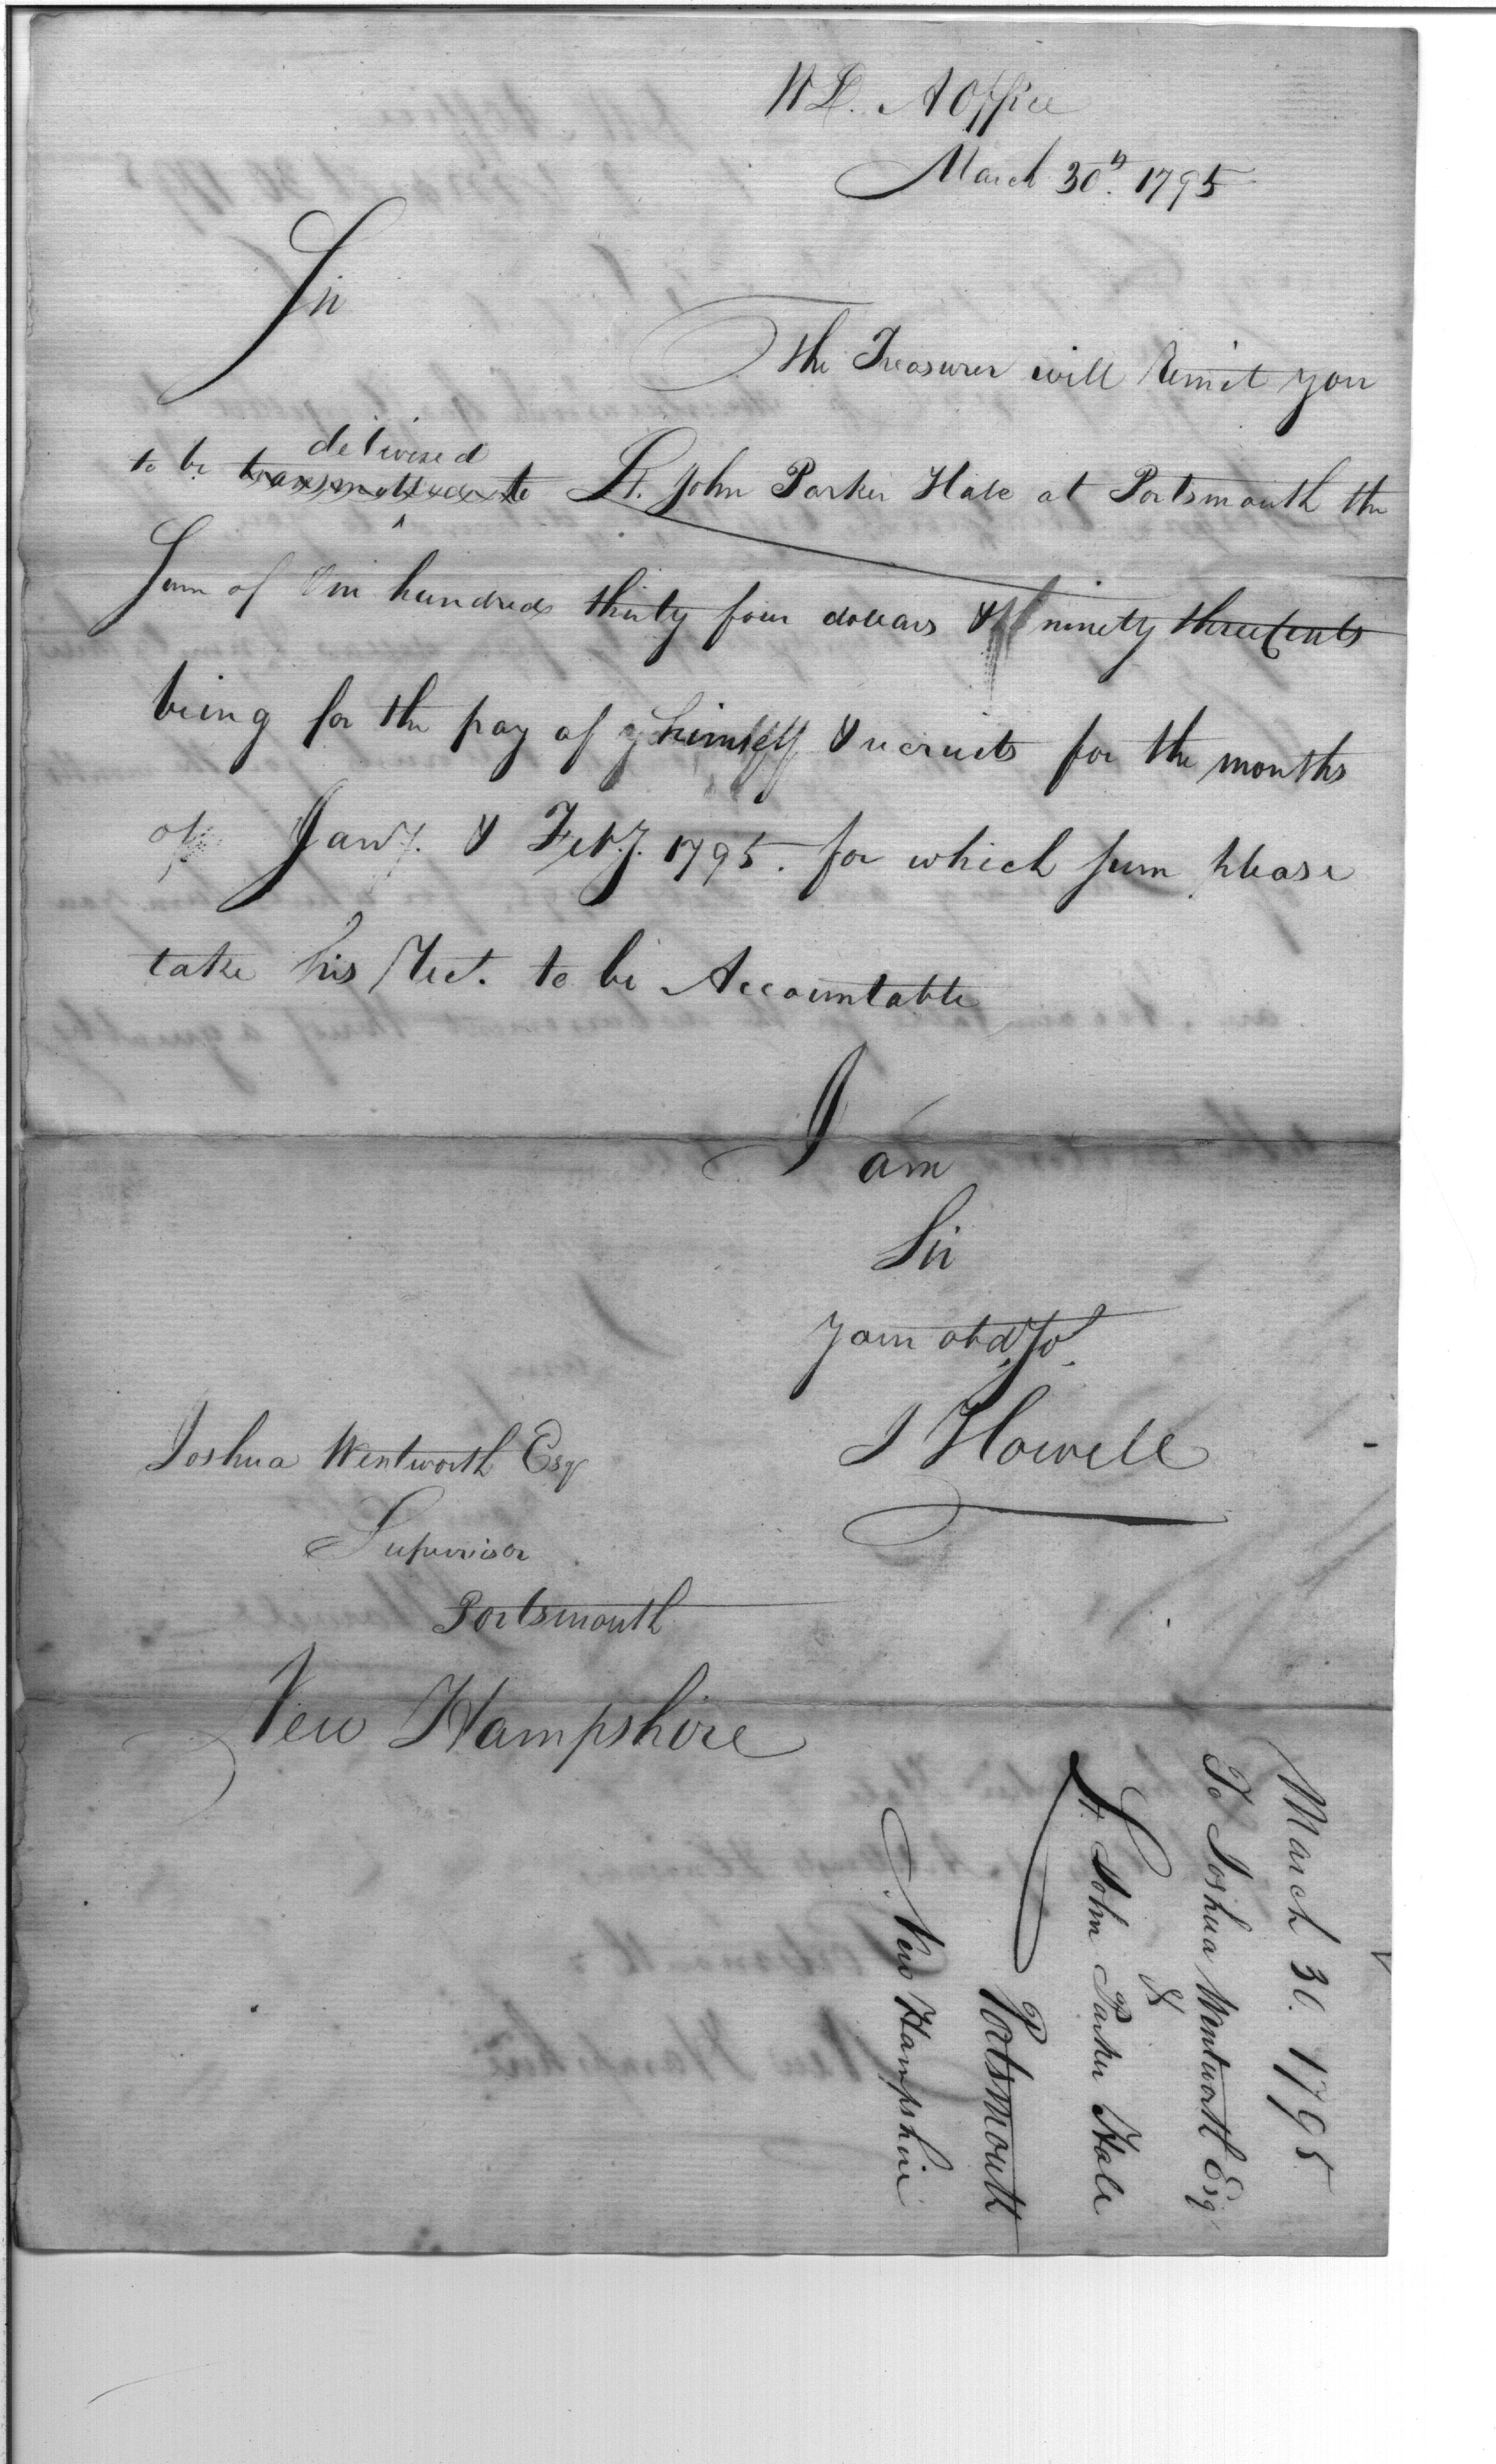 W D. A Office
March 30th. 1795
Sir
The Treasurer will remit you
delivered
to be transmitted to Lt. John Parker Hale at Portsmouth the
Sum of One hundred thirty four dollars & ninety three Cents
being for the pay of himself & recruits for the months
of Jany. & Feby. 1795. for which sum please
take his Rect. to be Accountable
I am
Sir
Your obdt. St.
J Howell
Joshua Wentworth Esqr
Supervisor
Portsmouth
New Hampshire
March 30. 1795
To Joshua Wentworth Esqr
&
Lt. John Parker Hale
Portsmouth
New Hampshire